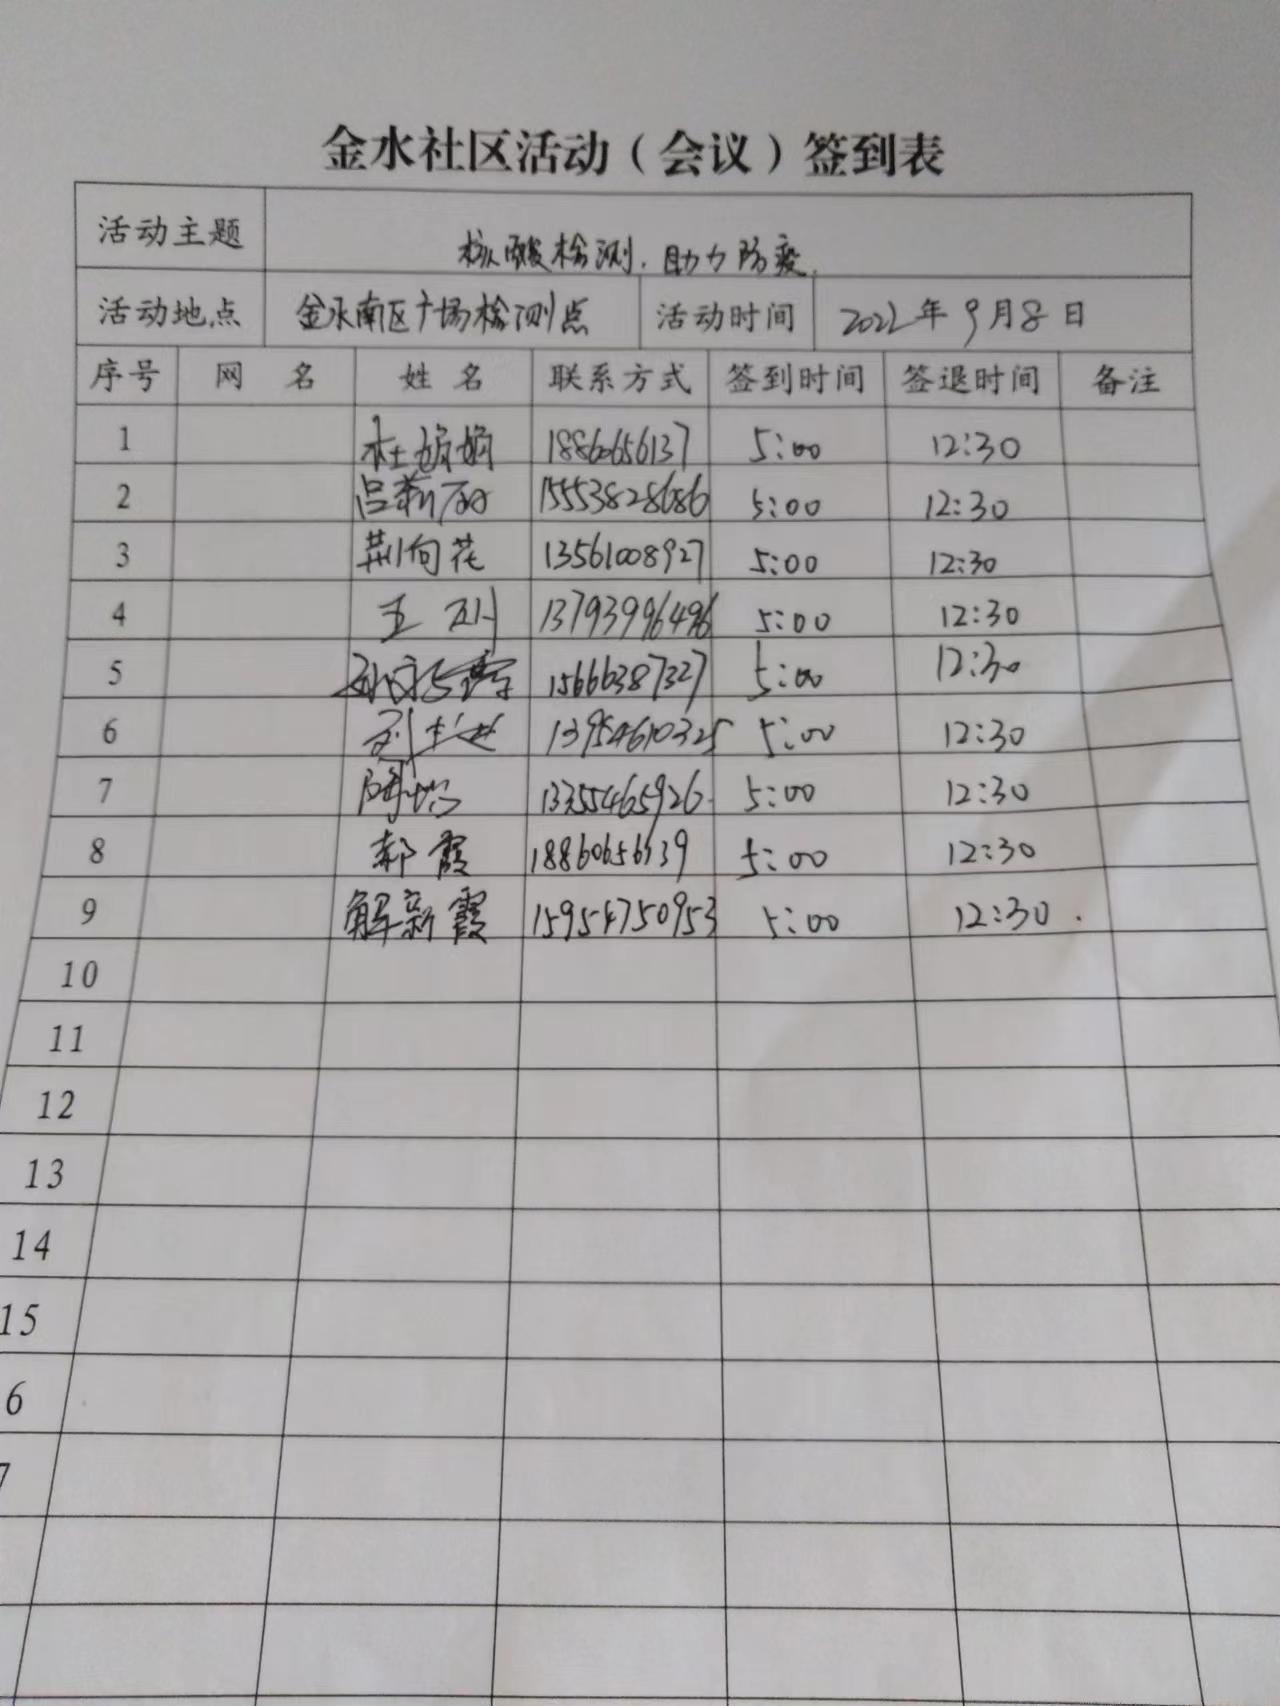 金水社区活动（会议）签到表
活动主题 核酸检测.助力防疫.
活动地点 金水南区广场检测点 活动时间 2022年9月8日
序号 网 名 姓 名 联系方式 签到时间 签退时间 备注
1 杜娟娟 18860656137 5:00 12:30
2 15553828686 5:00 12:30
3 荆向花 13561008927 5:00 12:30
4 王 13793996496 5:00 12:30
5 15666387327 5:00 12:30
6 13954610325 5:00 12:30
7 13355465926 5:00 12:30
8 郝霞 5:00 12:30
9 解新霞 15954750953 5:00 12:30.
10
11
12
13
14
15
6
7